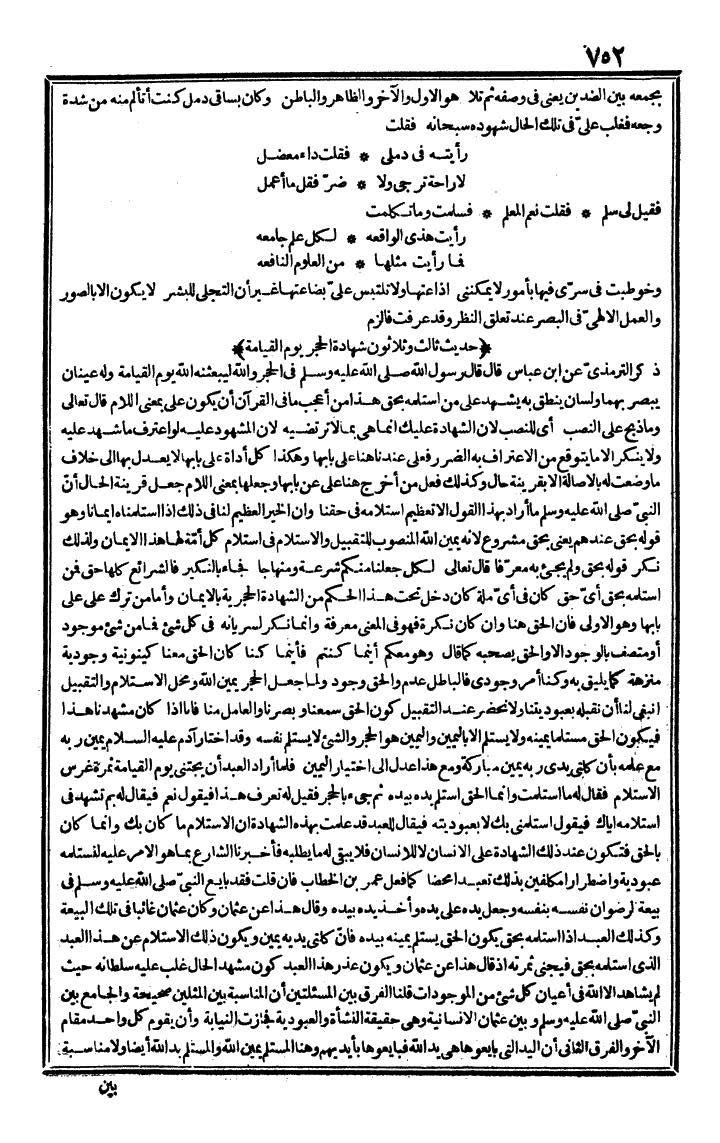 ٧٥٢
بجمعه بين الضدين يعنى فى وصفه ثم تلا هو الاول والآخر والظاهر والباطن وكان بساقى دمل كنت أتألم منه من شدة
وجعه فغلب علىّ فى تلك الحال شهوده سبحانه فقلت
رأيته فى دملى * فقلت داء معضل
لا راحة ترجى ولا * ضرّ فقل ما أعمل
فقيل لى سلم * فقلت نعم المعلم * فسلمت وما تكلمت
رأيت هذى الواقعه * لكل علم جامعه
فما رأيت مثلها * من العلوم النافعه
وخوطبت فى سرّى فيها بأمور لا يمكننى اذاعتها ولا تلتبس علىّ بضاعتها غير أن التجلى للبشر لا يكون الا بالصور
والعمل الالهىّ فى البصر عند تعلق النظر وقد عرفت فالزم
﴿حديث ثالث وثلاثون شهادة الحجر يوم القيامة﴾
ذكر الترمذىّ عن ابن عباس قال قال رسول الله صلى الله عليه وسلم فى الحجر والله ليبعثنه الله يوم القيامة وله عينان
يبصر بهما ولسان ينطق به يشهد على من استلمه بحق هذا من أعجب ما فى القرآن أن يكون على بمعنى اللام قال تعالى
وما ذبح على النصب أى للنصب لان الشهادة عليك انما هى بما لا ترتضيه لان المشهود عليه لو اعترف ما شهد عليه
ولا ينكر الا ما يتوقع من الاعتراف به الضرر فعلى عندنا هنا على بابها وهكذا كل أداة على بابها لا يعدل بها الى خلاف
ما وضعت له بالاصالة الا بقرينة حال وكذلك فعل من أخرج هنا على عن بابها وجعلها بمعنى اللام جعل قرينة الحال أنّ
النبىّ صلى الله عليه وسلم ما أراد بهذا القول الا تعظيم استلامه فى حقنا وان الخير العظيم لنا فى ذلك اذا استلمناه ايمانا وهو
قوله بحق عندهم يعنى بحق مشروع لانه يمين الله المنصوب للتقبيل والاستلام فى استلام كل أمّة لها هذا الايمان ولذلك
نكر قوله بحق ولم يجئ به معرّفا قال تعالى لكل جعلنا منكم شرعة ومنهاجا فجاء بالتنكير فالشرائع كلها حق فمن
استلمه بحق أىّ حق كان فى أىّ ملة كان دخل تحت هذا الحكم من الشهادة الحجرية بالايمان وأما من ترك على على
بابها وهو الاولى فان الحق هنا وان كان نكرة فهو فى المعنى معرفة وانما نكر لسريانه فى كل شئ فما من شئ موجود
أو متصف بالوجود الا والحق يصحبه كما قال وهو معكم أينما كنتم فأينما كنا كان الحق معنا كينونية وجودية
منزهة كما يليق به وكنا أمر وجودى فالباطل عدم والحق وجود ولما جعل الحجر يمين الله ومحل الاستلام والتقبيل
انبغى لنا أن نقبله بعبوديتنا ولا نحضر عند التقبيل كون الحق سمعنا وبصرنا والعامل منا فاما اذا كان مشهدنا هذا
فيكون الحق مستلما يمينه ولا يستلم الا باليمين واليمين هو الحجر والشئ لا يستلم نفسه وقد اختار آدم عليه السلام يمين ربه
مع علمه بأن كلتى يدى ربه يمين مباركة ومع هذا عدل الى اختيار اليمين فلما أراد العبد أن يجتنى يوم القيامة ثمرة غرس
الاستلام فقال له ما استلمت وانما الحق استلم يده بيده ثم جىء بالحجر فقيل له تعرف هذا فيقول نعم فيقال له بم تشهد فى
استلامه اياك فيقول استلمنى بك لا بعبوديته فيقال للعبد قد علمت بهذه الشهادة ان الاستلام ما كان بك وانما كان
بالحق فتكون عند ذلك الشهادة على الانسان لا للانسان فلا يبقى له ما يطلبه فأخبرنا الشارع بما هو الامر عليه لنستلمه
عبودية واضطرارا مكلفين بذلك تعبدا محضا كما فعل عمر بن الخطاب فان قلت فقد بايع النبىّ صلى الله عليه وسلم فى
بيعة الرضوان نفسه بنفسه وجعل يده على يده وأخذ يده بيده وقال هذا عن عثمان وكان عثمان غائبا فى تلك البيعة
وكذلك العبد اذا استلمه بحق يكون الحق يستلم يمينه بيده فانّ كلتى يديه يمين ويكون ذلك الاستلام عن هذا العبد
الذى استلمه بحق فيجنى ثمرته اذ قال هذا عن عثمان ويكون عذر هذا العبد كون مشهد الحال غلب عليه سلطانه حيث
لم يشاهد الا الله فى أعيان كل شئ من الموجودات قلنا الفرق بين المسئلتين أن المناسبة بين المثلين صحيحة والجامع بين
النبىّ صلى الله عليه وسلم وبين عثمان الانسانية وهى حقيقة النشأة والعبودية فجازت النيابة وأن يقوم كل واحد مقام
الآخر والفرق الثانى أن اليد التى بايعوها هى يد الله فبايعوها بأيديهم وهنا المستلم يمين الله والمستلم يد الله أيضا ولا مناسبة
بين